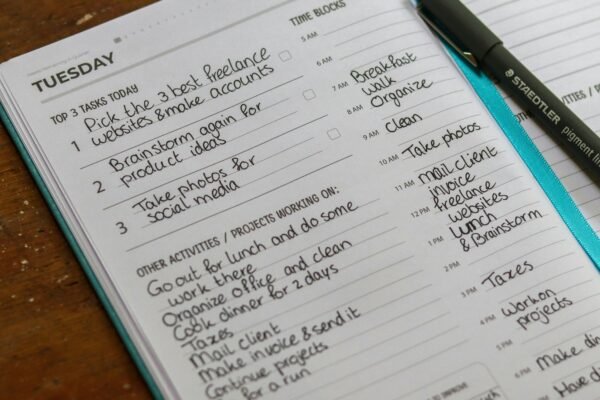 TUESDAY
TOP 3 TASKS TODAY
1 Pick the 3 best freelance
websites & make accounts
2 Brainstorm again for
product ideas
3 Take photos for
social media
OTHER ACTIVITIES / PROJECTS WORKING ON:
Go out for lunch and do some
work there
Organize office and clean
Cook dinner for 2 days
Taxes
Mail client
Make invoice & send it
Continue projects
for a run
TIME BLOCKS
5 AM
6 AM
7 AM Breakfast
walk
8 AM Organize
9 AM clean
10 AM Take photos
11 AM mail client
invoice
12 PM freelance
websites
1 PM lunch
& Brainstorm
2 PM
3 PM Taxes
4 PM work on
projects
5 PM
6 PM Make din
Have di
TIVITIES / PRO
STAEDTLER
pigment lin